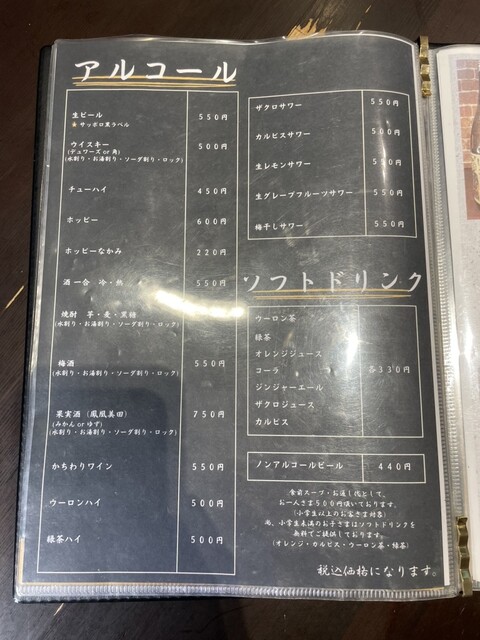 アルコール
生ビール 550円
★サッポロ黒ラベル
ウイスキー 500円
(デュワーズ or 角)
(水割り・お湯割り・ソーダ割り・ロック)
チューハイ 450円
ホッピー 600円
ホッピーなかみ 220円
酒 一合 冷・熱 550円
焼酎 芋・麦・黒糖
(水割り・お湯割り・ソーダ割り・ロック)
梅酒 550円
(水割り・お湯割り・ソーダ割り・ロック)
果実酒(鳳凰美田) 750円
(みかん or ゆず)
(水割り・お湯割り・ソーダ割り・ロック)
かちわりワイン 550円
ウーロンハイ 500円
緑茶ハイ 500円
ザクロサワー 550円
カルピスサワー 500円
生レモンサワー 550円
生グレープフルーツサワー 550円
梅干しサワー 550円
ソフトドリンク
ウーロン茶
緑茶
オレンジジュース
コーラ 各330円
ジンジャーエール
ザクロジュース
カルピス
ノンアルコールビール 440円
食前スープ・お通し代として、
お一人さま500円頂いております。
(小学生以上のお客さま対象)
尚、小学生未満のお子さまはソフトドリンクを
無料でご提供しております。
(オレンジ・カルピス・ウーロン茶・緑茶)
税込価格になります。